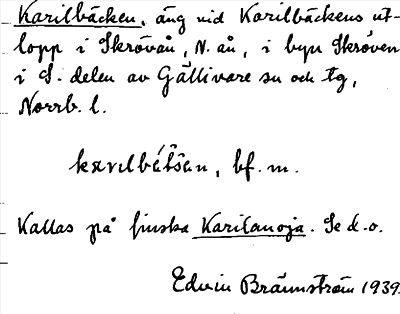 Karilbäcken, äng vid Karilbäckens ut-
lopp i Skröván, N. ån, i byn Skröven
i S. delen av Gällivare sn och tg,
Norrb. l.
bf. m.
Kallas på finska Karilanoja. Se d. o.
Edvin Brännström 1939.